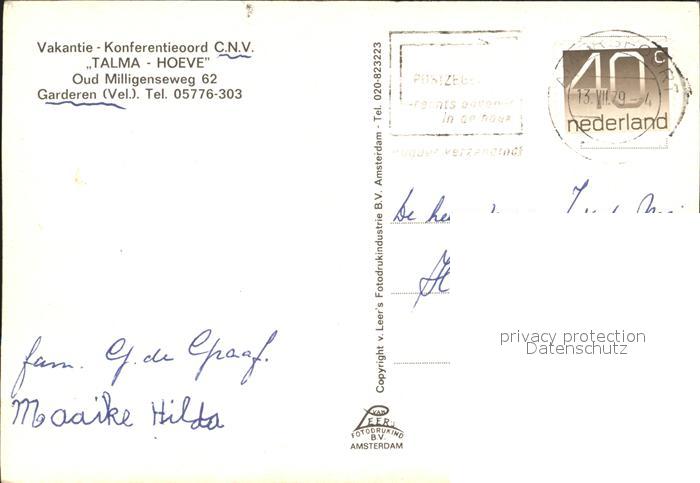 Vakantie - Konferentieoord C.N.V.
„TALMA - HOEVE"
Oud Milligenseweg 62
Garderen (Vel.). Tel. 05776-303
fam. G. de Graaf.
Maaike Hilda
Copyright v. Leer's Fotodrukindustrie B.V. Amsterdam - Tel. 020-823223
VAN
LEER
FOTODRUKIND
B.V.
AMSTERDAM
POSTZEGEL
rechts boven
in de hoek
40c
nederland
13.VII.79 - 4
De
privacy protection
Datenschutz